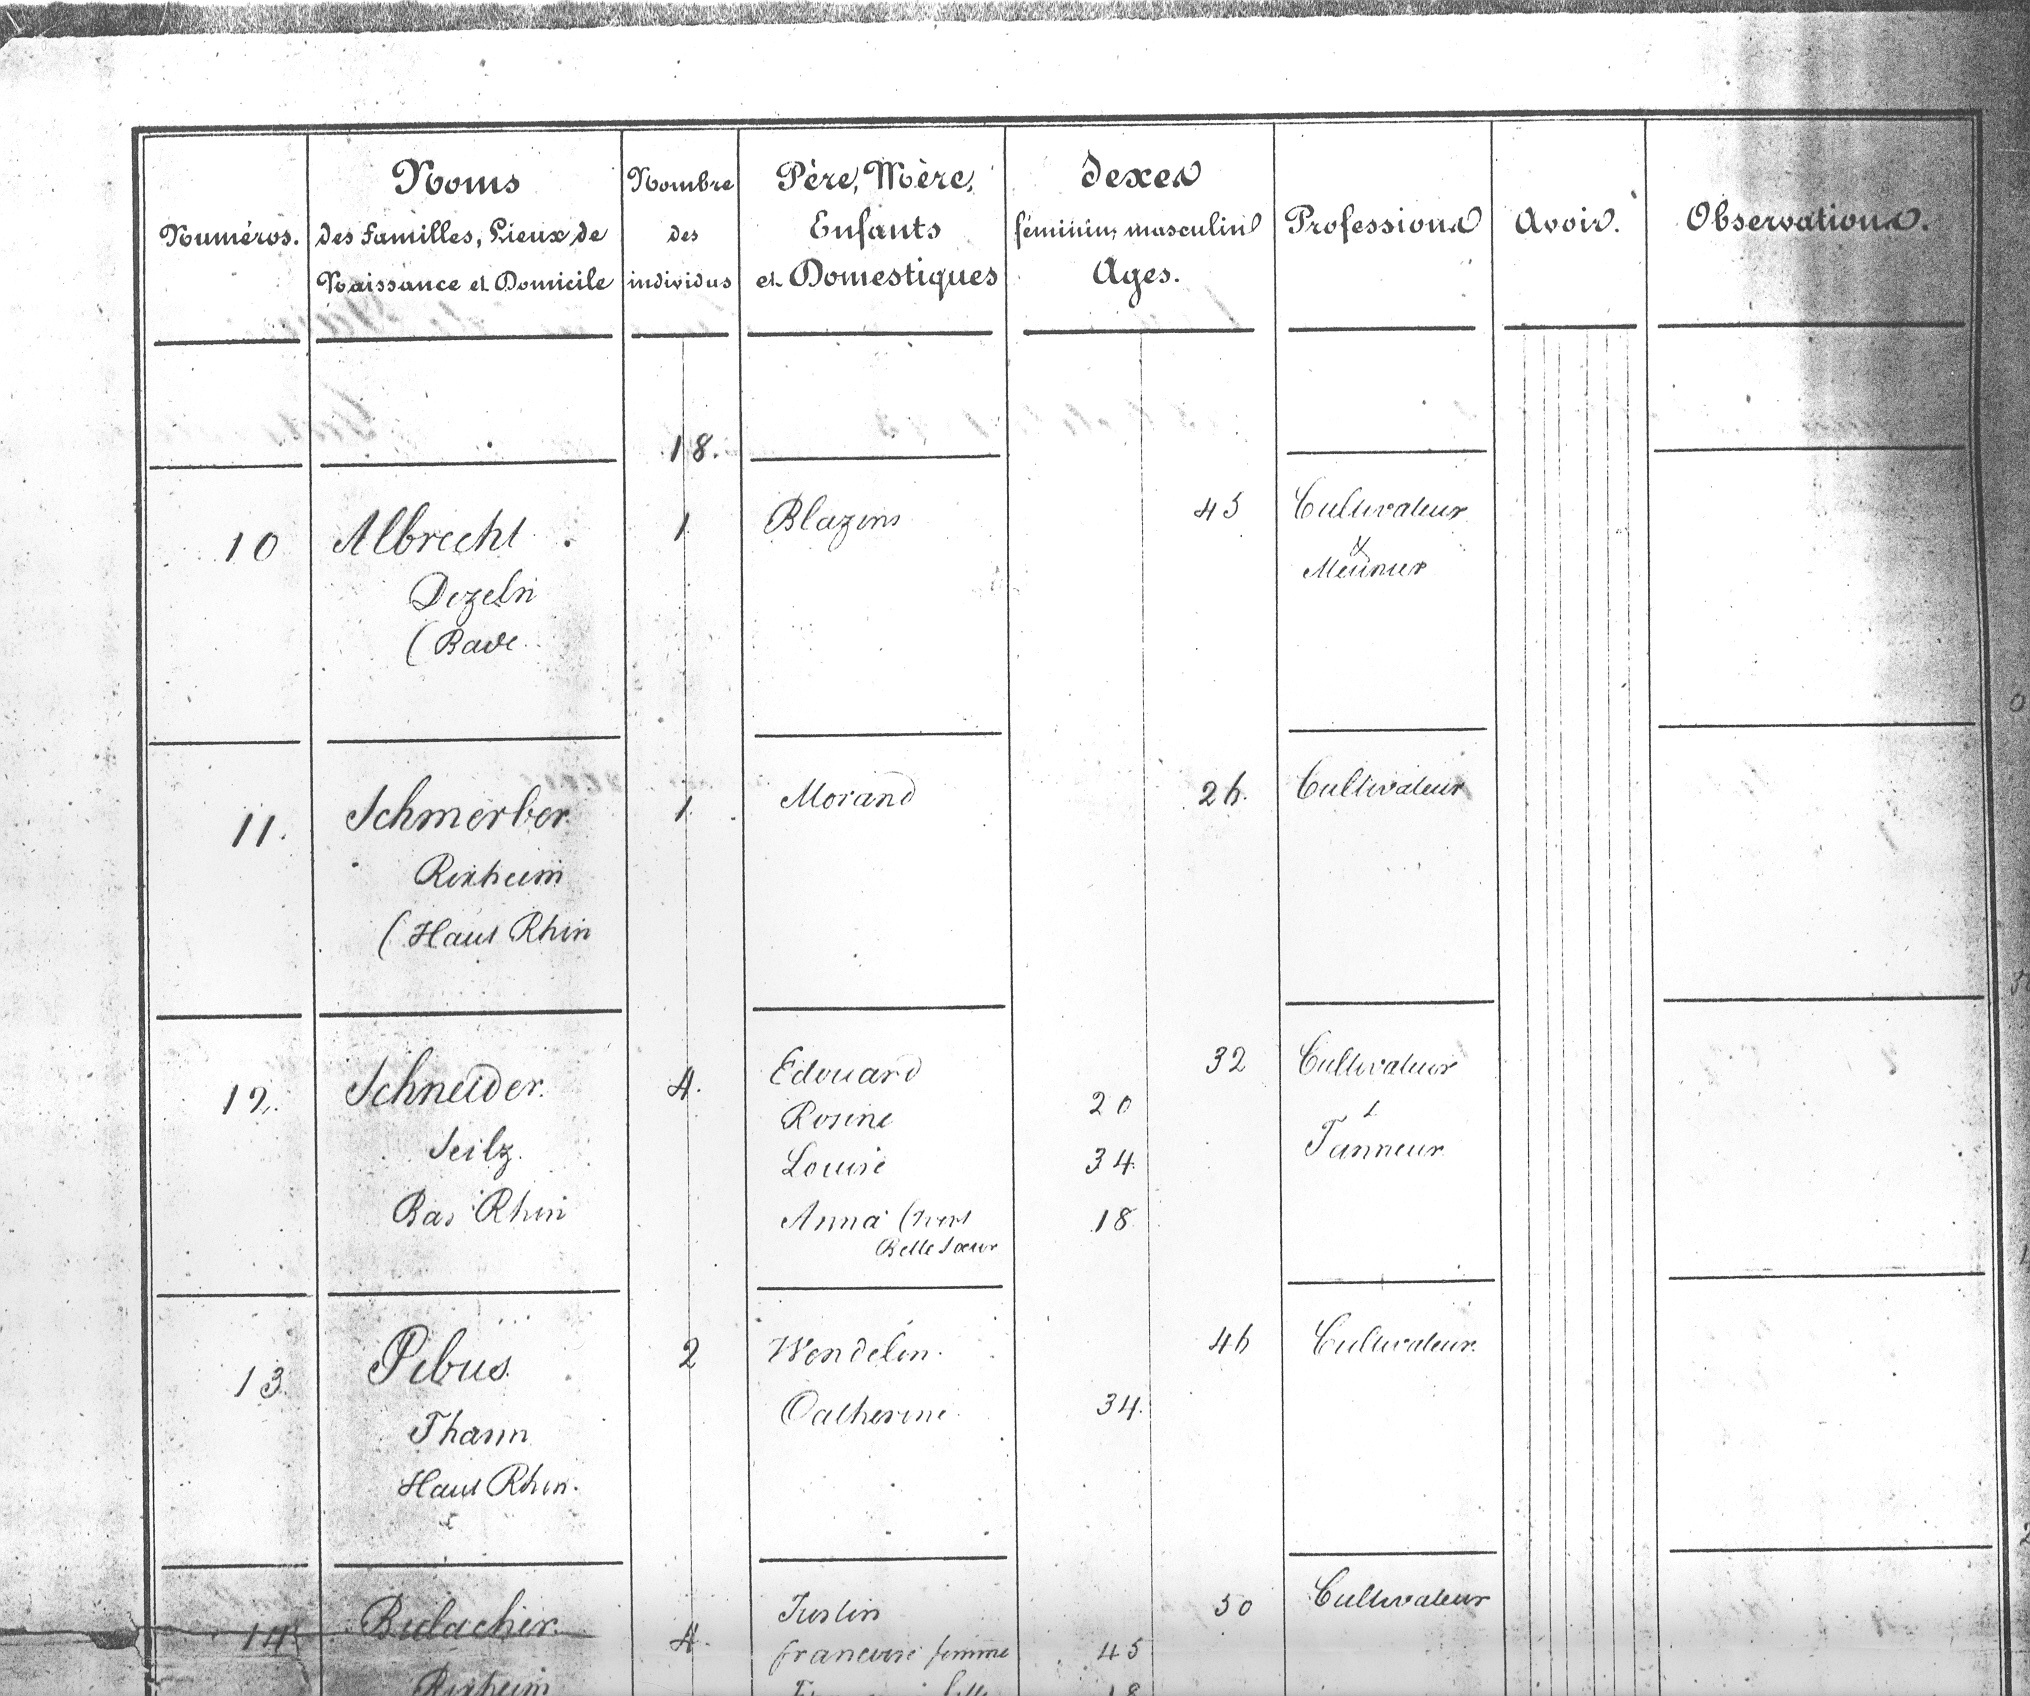 Numéros.
Noms
des Familles, Lieux de
Naissance et Domicile
Nombre
des
individus
Père, Mère,
Enfants
et Domestiques
Sexes
féminin, masculin
Ages.
Professions
Avoir.
Observations.
18.
10
Albrecht
Dezeln
(Bade
1
Blazius
45
Cultivateur
&
Meunier
11.
Schmerber
Rixheim
(Haut Rhin
1.
Morand
26.
Cultivateur
12.
Schneider.
Seilz.
Bas Rhin
4.
Edouard
32
Rosine
20
Louise
34.
Anna
18
Belle Sœur
Cultivateur
&
Tanneur
13.
Pibus.
Thann
Haut Rhin.
2
Wendelin.
46
Catherine
34.
Cultivateur.
14
Bulacher
Rixheim
4.
Justin
50
francoise femme
45
18
Cultivateur